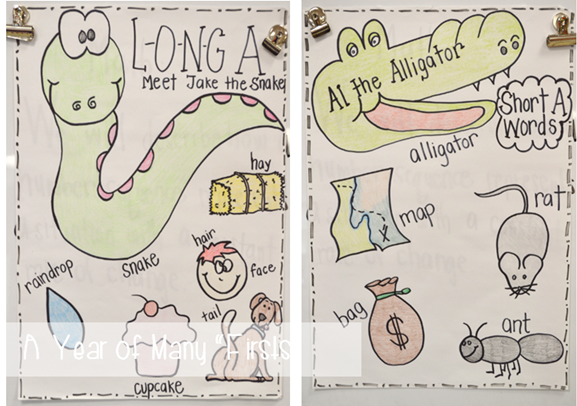 L-O-N-G A
Meet Jake the Snake!
hay
hair
face
snake
raindrop
tail
cupcake
A Year of Many "Firsts
Al the Alligator
Short A
Words
alligator
map
rat
bag
$
X
ant